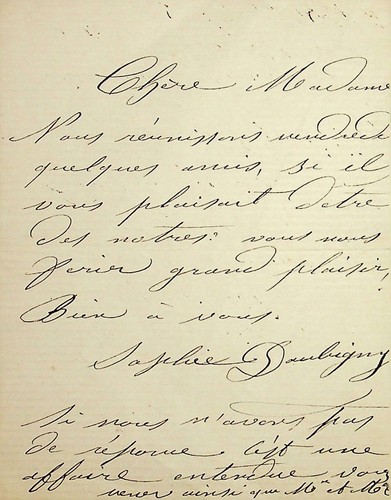 Chère Madame
Nous réunissons vendredi
quelques amis, si il
vous plaisait d'etre
des notres: vous nous
ferier grand plaisir,
Bien à vous.
Sophie Daubigny
Si nous n'avons pas
de réponse c'est une
affaire entendue vous
venez ainsi que Mr et Me